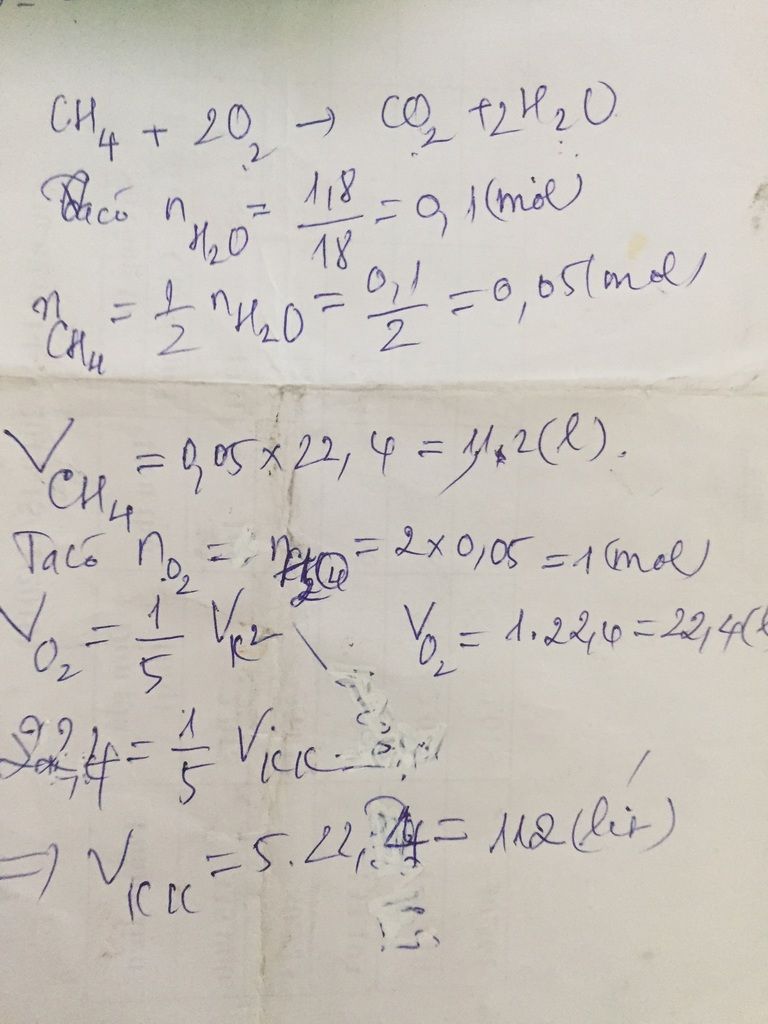 CH4 + 2O2 → CO2 + 2H2O
Ta có nH2O = 1,8/18 = 0,1 (mol)
nCH4 = 1/2 nH2O = 0,1/2 = 0,05 (mol)
VCH4 = 0,05 x 22,4 = 11.2 (l).
Ta có nO2 = = 2 x 0,05 = 1 (mol)
VO2 = 1/5 VK2 VO2 = 1.22,4 = 22,4 (l
22,4 = 1/5 VKK
=> VKK = 5.22,4 = 112 (lít)